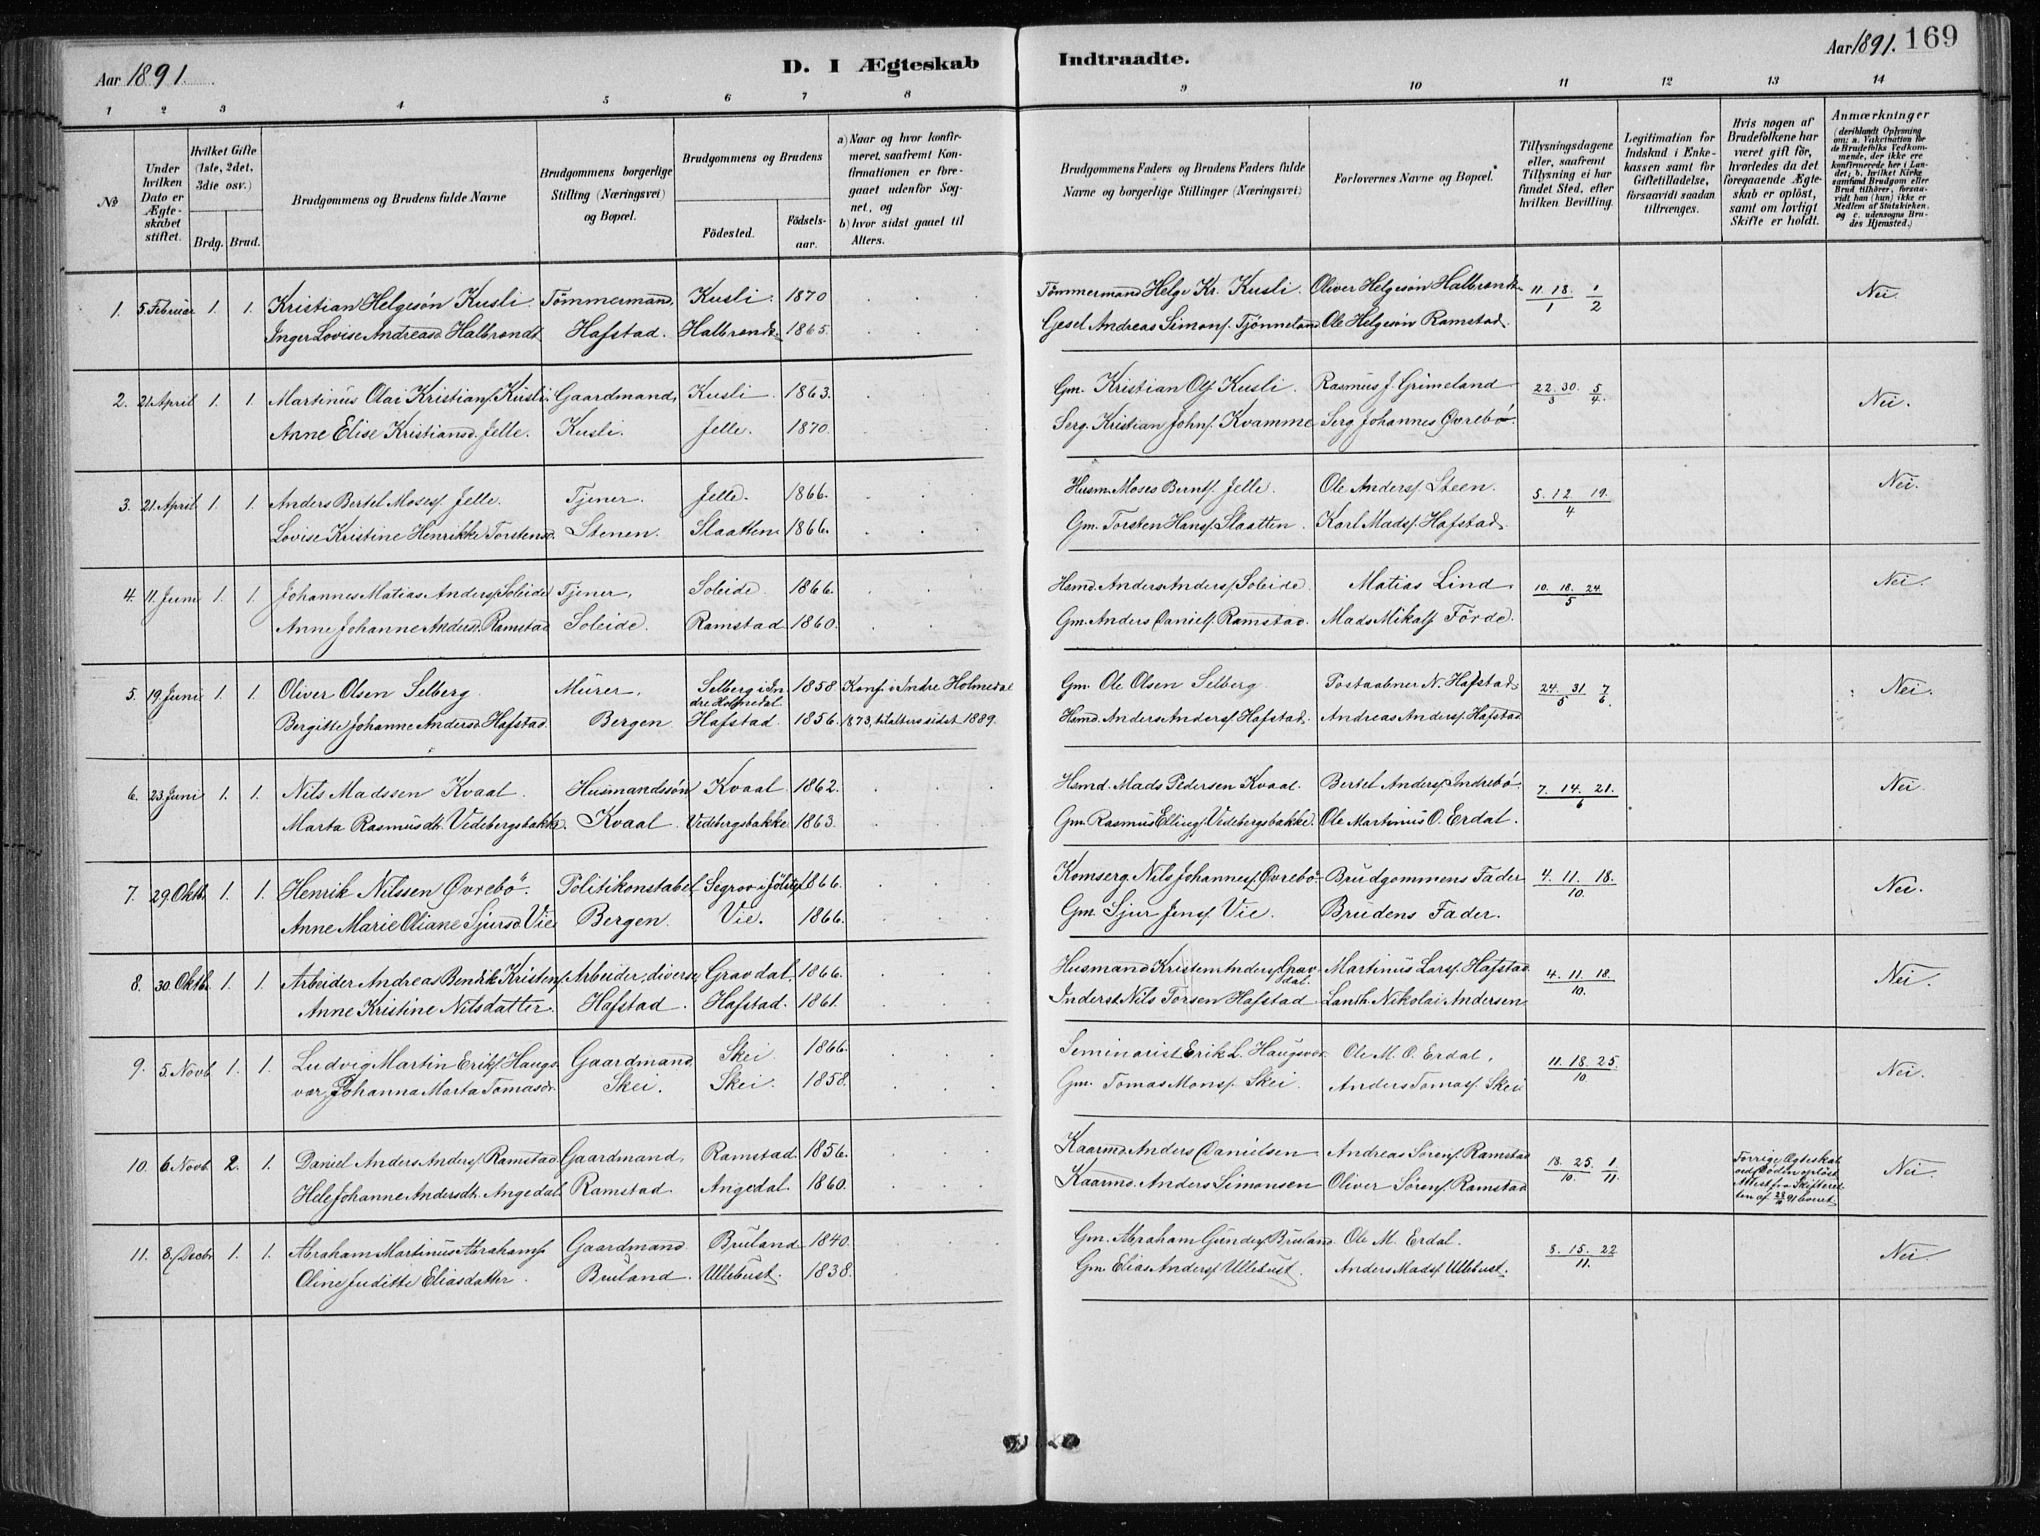 Aar 1891.
D. I Ægteskab Indtraadte.
Aar 1891. 169
1 2 3 4 5 6 7 8 9 10 11 12 13 14
No
Under hvilken Dato er Ægteskabet stiftet.
Hvilket Gifte (1ste, 2det, 3die osv.)
Brdg. Brud.
Brudgommens og Brudens fulde Navne
Brudgommens borgerlige Stilling (Næringsvei) og Bopæl.
Brudgommens og Brudens
Födested. Födsels-aar.
a) Naar og hvor konfirmeret, saafremt Konfirmationen er foregaaet udenfor Sognet, og
b) hvor sidst gaaet til Alters.
Brudgommens Faders og Brudens Faders fulde Navne og borgerlige Stillinger (Næringsvei)
Forlovernes Navne og Bopæl.
Tillysningsdagene eller, saafremt Tillysning ei har fundet Sted, efter hvilken Bevilling.
Legitimation for Indskud i Enkekassen samt for Giftetilladelse, forsaavidt saadan tiltrænges.
Hvis nogen af Brudefolkene har været gift før, hvorledes da det foregaaende Ægteskab er opløst, samt om lovligt Skifte er holdt.
Anmærkninger (deriblandt Oplysning om: a. Vakcination for de Brudefolks Vedkommende, der ikke ere konfirmerede her i Landet; b. hvilket Kirkesamfund Brudgom eller Brud tilhører, forsaavidt han (hun) ikke er Medlem af Statskirken, og c. udensogns Brudes Hjemsted.)
1. 5 Februar 1. 1. Kristian Helgesøn Kusli. Tömmermand, Kusli. 1870 Tömmermand Helge Kr. Kusli. Oliver Helgesøn Halbrendt 11. 18. 1/1 2 Nei.
Inger Lovise Andreasd. Halbrendt Hafstad. Halbrendt 1865. Gesel Andreas Simons. Tjönneland Ole Helgesøn Ramstad.
2. 21 April 1. 1. Martinus Olai Kristians. Kusli. Gaardmand, Kusli. 1863. Gm. Kristian Ols. Kusli. Rasmus J. Grimeland 22. 30. 5/3 4. Nei.
Anne Elise Kristiansd. Jelle. Kusli. Jelle. 1870. Serg. Kristian Johns. Kvamme Serg Johannes Øvrebö.
3. 21 April 1. 1. Anders Bertel Moses. Jelle. Tjener. Jelle. 1866. Husm. Moses Bernts. Jelle. Ole Anders. Steen. 5. 12 19./4 Nei.
Lovise Kristine Henrikke Torstensd. Stenen. Slaatten 1866. Gm. Torsten Hans. Slaatten. Karl Mads. Hafstad.
4. 11. Juni 1. 1. Johannes Matias Anders. Soleide Tjener, Soleide. 1866. Hsmd. Anders Anders. Soleide Matias Lind 10. 18. 24/5 Nei.
Anne Johanne Andersd. Ramstad Soleide. Ramstad 1860. Gm. Anders Daniels. Ramstad. Mads Mikals. Förde.
5. 19 Juni 1. 1. Oliver Olsen Selberg. Murer. Selberg i Indre Holmedal 1858 Konf. i Indre Holmedal Gm. Ole Olsen Selberg. Postaabner N. Hafstad. 24. 31 7/5 6. Nei.
Bergitte Johanne Andersd. Hafstad. Bergen Hafstad 1856. 1873, til alters sidst 1889. Hsmd. Anders Anders. Hafstad. Andreas Anders. Hafstad
6. 23 Juni 1. 1. Nils Madssen Kvaal. Husmandssön Kvaal 1862. Hsmd. Mads Pedersen Kvaal. Bertel Anders. Indrebö. 7. 14. 21./6 Nei
Marta Rasmusdt. Vedebergsbakke. Kvaal. Vedebergsbakke 1863. Gm. Rasmus Ellings. Vedebergsbakke. Ole Martinus O. Erdal.
7. 29. Oktb. 1. 1. Henrik Nilssen Øvrebö. Politikonstabel Segrov i Jölster 1866. Komserg. Nils Johannes. Øvrebö Brudgommens Fader 4. 11. 18./10. Nei.
Anne Marie Oliane Sjursd. Vie Bergen. Vie. 1866. Gm. Sjur Jens. Vie. Brudens Fader.
8. 30. Oktb. 1. 1. Arbeider Andreas Bendik Kristens. Arbeider, diverse, Gravdal. 1866. Husmand Kristen Anders. Gravdal. Martinus Lars. Hafstad 4. 11. 18./10. Nei.
Anne Kristine Nilsdatter. Hafstad. Hafstad. 1861. Inderst Nils Torsen Hafstad. Lanth. Nikolai Andersen
9. 5. Novb. 1. 1. Ludvig Martin Eriks. Haugs- Gaardmand. Skei. 1866. Seminarist Erik L. Haugsvær. Ole M. O. Erdal. 11. 18. 25./10. Nei.
vær. Johanna Marta Tomasdr. Skei. Skei. 1858. Gm. Tomas Mons. Skei. Anders Tomas. Skei
10. 6 Novb. 2. 1. Daniel Anders Anders. Ramstad. Gaardmand. Ramstad. 1856. Kaarmd. Anders Danielsen Andreas Sörens. Ramstad 18. 25. 1/10. 11. Forrige Ægteskab ved Döden oplöst. Attest fra Skifteretten af 91 leveret. Nei.
Hele Johanne Andersdt. Angedal. Ramstad. Angedal. 1860. Kaarmd. Anders Simonsen Oliver Sörens. Ramstad
11. 8. Decbr. 1. 1. Abraham Martinus Abrahams. Gaardmand. Bruland 1840. Gm. Abraham Gunders. Bruland. Ole M. Erdal. 8. 15. 22/11. Nei
Oline Juditte Eliasdatter. Bruland. Ullebust. 1838. Gm. Elias Anders. Ullebust. Anders Mads. Ullebust.